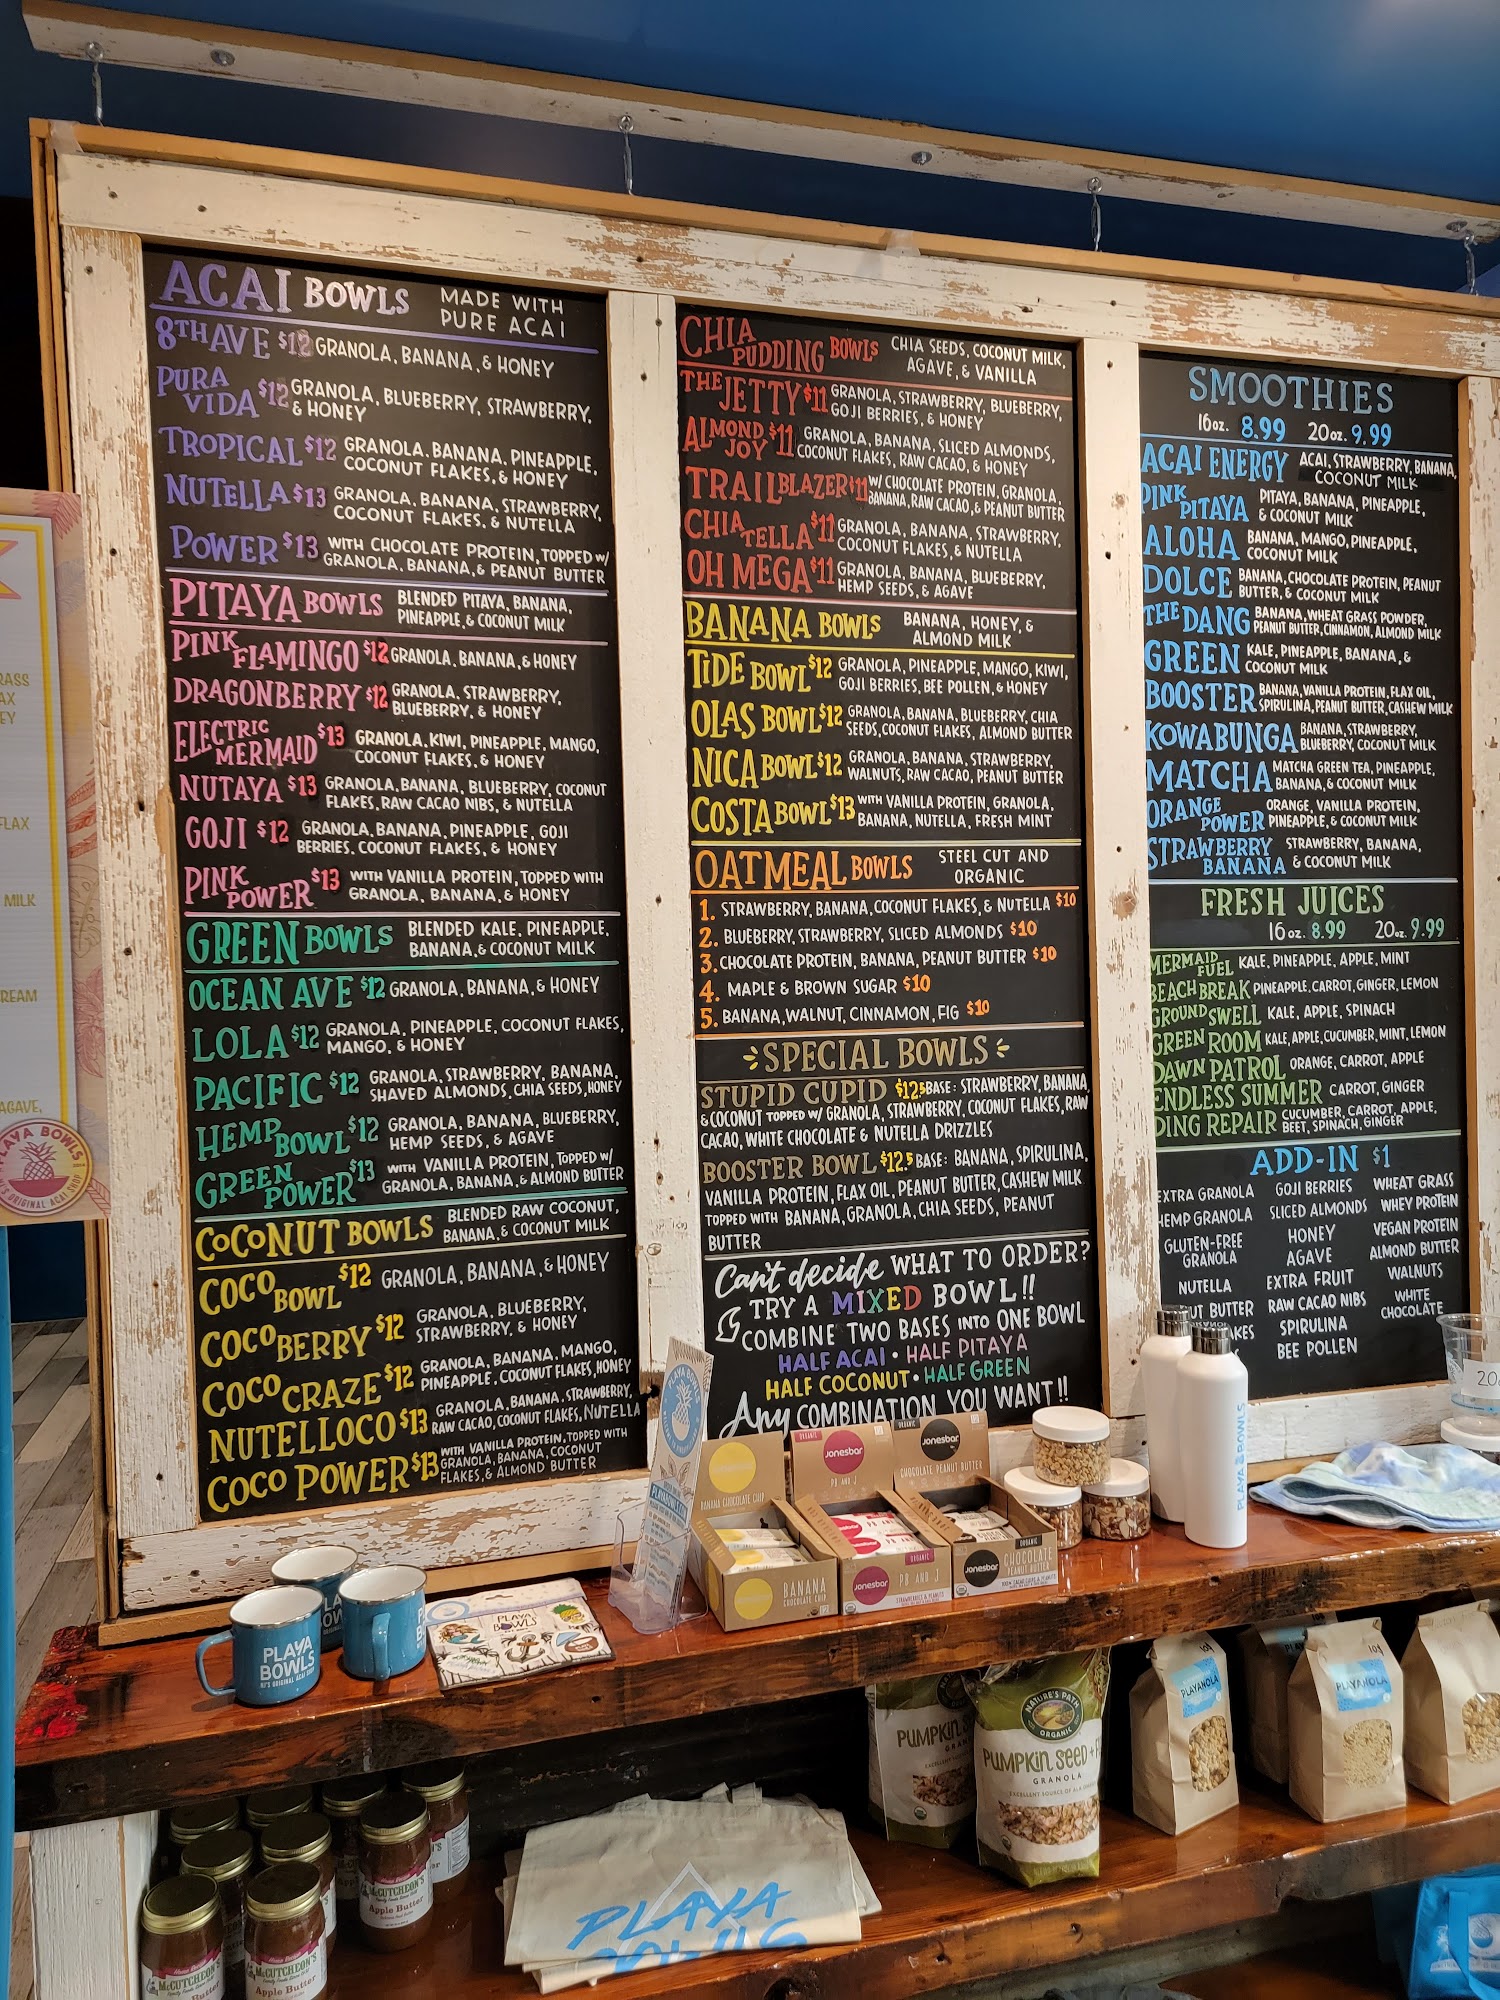 ACAI BOWLS MADE WITH
PURE ACAI
8TH AVE $12 GRANOLA, BANANA, & HONEY
PURA VIDA $12 GRANOLA, BLUEBERRY, STRAWBERRY,
& HONEY
TROPICAL $12 GRANOLA, BANANA, PINEAPPLE,
COCONUT FLAKES, & HONEY
NUTELLA $13 GRANOLA, BANANA, STRAWBERRY,
COCONUT FLAKES, & NUTELLA
POWER $13 WITH CHOCOLATE PROTEIN, TOPPED W/
GRANOLA, BANANA, & PEANUT BUTTER
PITAYA BOWLS BLENDED PITAYA, BANANA,
PINEAPPLE, & COCONUT MILK
PINK FLAMINGO $12 GRANOLA, BANANA, & HONEY
DRAGONBERRY $12 GRANOLA, STRAWBERRY,
BLUEBERRY, & HONEY
ELECTRIC MERMAID $13 GRANOLA, KIWI, PINEAPPLE, MANGO,
COCONUT FLAKES, & HONEY
NUTAYA $13 GRANOLA, BANANA, BLUEBERRY, COCONUT
FLAKES, RAW CACAO NIBS, & NUTELLA
GOJI $12 GRANOLA, BANANA, PINEAPPLE, GOJI
BERRIES, COCONUT FLAKES, & HONEY
PINK POWER $13 WITH VANILLA PROTEIN, TOPPED WITH
GRANOLA, BANANA, & HONEY
GREEN BOWLS BLENDED KALE, PINEAPPLE,
BANANA, & COCONUT MILK
OCEAN AVE $12 GRANOLA, BANANA, & HONEY
LOLA $12 GRANOLA, PINEAPPLE, COCONUT FLAKES,
MANGO, & HONEY
PACIFIC $12 GRANOLA, STRAWBERRY, BANANA,
SHAVED ALMONDS, CHIA SEEDS, HONEY
HEMP BOWL $12 GRANOLA, BANANA, BLUEBERRY,
HEMP SEEDS, & AGAVE
GREEN POWER $13 WITH VANILLA PROTEIN, TOPPED W/
GRANOLA, BANANA, & ALMOND BUTTER
COCONUT BOWLS BLENDED RAW COCONUT,
BANANA, & COCONUT MILK
COCO BOWL $12 GRANOLA, BANANA, & HONEY
COCO BERRY $12 GRANOLA, BLUEBERRY,
STRAWBERRY, & HONEY
COCO CRAZE $12 GRANOLA, BANANA, MANGO,
PINEAPPLE, COCONUT FLAKES, HONEY
NUTELLOCO $13 GRANOLA, BANANA, STRAWBERRY,
RAW CACAO, COCONUT FLAKES, NUTELLA
COCO POWER $13 WITH VANILLA PROTEIN, TOPPED WITH
GRANOLA, BANANA, COCONUT
FLAKES, & ALMOND BUTTER
CHIA PUDDING BOWLS CHIA SEEDS, COCONUT MILK,
AGAVE, & VANILLA
THE JETTY $11 GRANOLA, STRAWBERRY, BLUEBERRY,
GOJI BERRIES, & HONEY
ALMOND JOY $11 GRANOLA, BANANA, SLICED ALMONDS,
COCONUT FLAKES, RAW CACAO, & HONEY
TRAILBLAZER $11 W/ CHOCOLATE PROTEIN, GRANOLA,
BANANA, RAW CACAO, & PEANUT BUTTER
CHIA TELLA $11 GRANOLA, BANANA, STRAWBERRY,
COCONUT FLAKES, & NUTELLA
OH MEGA $11 GRANOLA, BANANA, BLUEBERRY,
HEMP SEEDS, & AGAVE
BANANA BOWLS BANANA, HONEY, &
ALMOND MILK
TIDE BOWL $12 GRANOLA, PINEAPPLE, MANGO, KIWI,
GOJI BERRIES, BEE POLLEN, & HONEY
OLAS BOWL $12 GRANOLA, BANANA, BLUEBERRY, CHIA
SEEDS, COCONUT FLAKES, ALMOND BUTTER
NICA BOWL $12 GRANOLA, BANANA, STRAWBERRY,
WALNUTS, RAW CACAO, PEANUT BUTTER
COSTA BOWL $13 WITH VANILLA PROTEIN, GRANOLA,
BANANA, NUTELLA, FRESH MINT
OATMEAL BOWLS STEEL CUT AND
ORGANIC
1. STRAWBERRY, BANANA, COCONUT FLAKES, & NUTELLA $10
2. BLUEBERRY, STRAWBERRY, SLICED ALMONDS $10
3. CHOCOLATE PROTEIN, BANANA, PEANUT BUTTER $10
4. MAPLE & BROWN SUGAR $10
5. BANANA, WALNUT, CINNAMON, FIG $10
SPECIAL BOWLS
STUPID CUPID $12.5 BASE: STRAWBERRY, BANANA,
& COCONUT TOPPED W/ GRANOLA, STRAWBERRY, COCONUT FLAKES, RAW
CACAO, WHITE CHOCOLATE & NUTELLA DRIZZLES
BOOSTER BOWL $12.5 BASE: BANANA, SPIRULINA,
VANILLA PROTEIN, FLAX OIL, PEANUT BUTTER, CASHEW MILK
TOPPED WITH BANANA, GRANOLA, CHIA SEEDS, PEANUT
BUTTER
Can't decide WHAT TO ORDER?
TRY A MIXED BOWL!!
COMBINE TWO BASES INTO ONE BOWL
HALF ACAI • HALF PITAYA
HALF COCONUT • HALF GREEN
Any COMBINATION YOU WANT!!
SMOOTHIES
16oz. 8.99 20oz. 9.99
ACAI ENERGY ACAI, STRAWBERRY, BANANA,
COCONUT MILK
PINK PITAYA PITAYA, BANANA, PINEAPPLE,
& COCONUT MILK
ALOHA BANANA, MANGO, PINEAPPLE,
COCONUT MILK
DOLCE BANANA, CHOCOLATE PROTEIN, PEANUT
BUTTER, & COCONUT MILK
THE DANG BANANA, WHEAT GRASS POWDER,
PEANUT BUTTER, CINNAMON, ALMOND MILK
GREEN KALE, PINEAPPLE, BANANA, &
COCONUT MILK
BOOSTER BANANA, VANILLA PROTEIN, FLAX OIL,
SPIRULINA, PEANUT BUTTER, CASHEW MILK
KOWABUNGA BANANA, STRAWBERRY,
BLUEBERRY, COCONUT MILK
MATCHA MATCHA GREEN TEA, PINEAPPLE,
BANANA, & COCONUT MILK
ORANGE POWER ORANGE, VANILLA PROTEIN,
PINEAPPLE, & COCONUT MILK
STRAWBERRY BANANA STRAWBERRY, BANANA,
& COCONUT MILK
FRESH JUICES
16oz. 8.99 20oz. 9.99
MERMAID FUEL KALE, PINEAPPLE, APPLE, MINT
BEACH BREAK PINEAPPLE, CARROT, GINGER, LEMON
GROUND SWELL KALE, APPLE, SPINACH
GREEN ROOM KALE, APPLE, CUCUMBER, MINT, LEMON
DAWN PATROL ORANGE, CARROT, APPLE
ENDLESS SUMMER CARROT, GINGER
DING REPAIR CUCUMBER, CARROT, APPLE,
BEET, SPINACH, GINGER
ADD-IN $1
EXTRA GRANOLA
HEMP GRANOLA
GLUTEN-FREE
GRANOLA
NUTELLA
UT BUTTER
AKES
GOJI BERRIES
SLICED ALMONDS
HONEY
AGAVE
EXTRA FRUIT
RAW CACAO NIBS
SPIRULINA
BEE POLLEN
WHEAT GRASS
WHEY PROTEIN
VEGAN PROTEIN
ALMOND BUTTER
WALNUTS
WHITE
CHOCOLATE
RASS
AX
EY
FLAX
MILK
REAM
AGAVE,
PLAYA BOWLS
NJ'S ORIGINAL ACAI SHOP
PLAYA BOWLS
PLAYA
BOWLS
NJ'S ORIGINAL ACAI SHOP
PLAYA
BOWLS
BANANA CHOCOLATE CHIP
BANANA
CHOCOLATE CHIP
ORGANIC
Jonesbar
PB AND J
Jonesbar
PB AND J
ORGANIC
ORGANIC
Jonesbar
CHOCOLATE PEANUT BUTTER
ORGANIC
Jonesbar
CHOCOLATE
PEANUT BUTTER
PLAYA BOWLS
20
PUMPKIN S
NATURE'S PATH
ORGANIC
PUMPKIN SEED + F
GRANOLA
PLAYANOLA
PLAYANOLA
McCUTCHEON'S
Apple Butter
McCUTCHEON'S
Butter
McCUTCHEON'S
Apple Butter
PLAYA
BOWLS